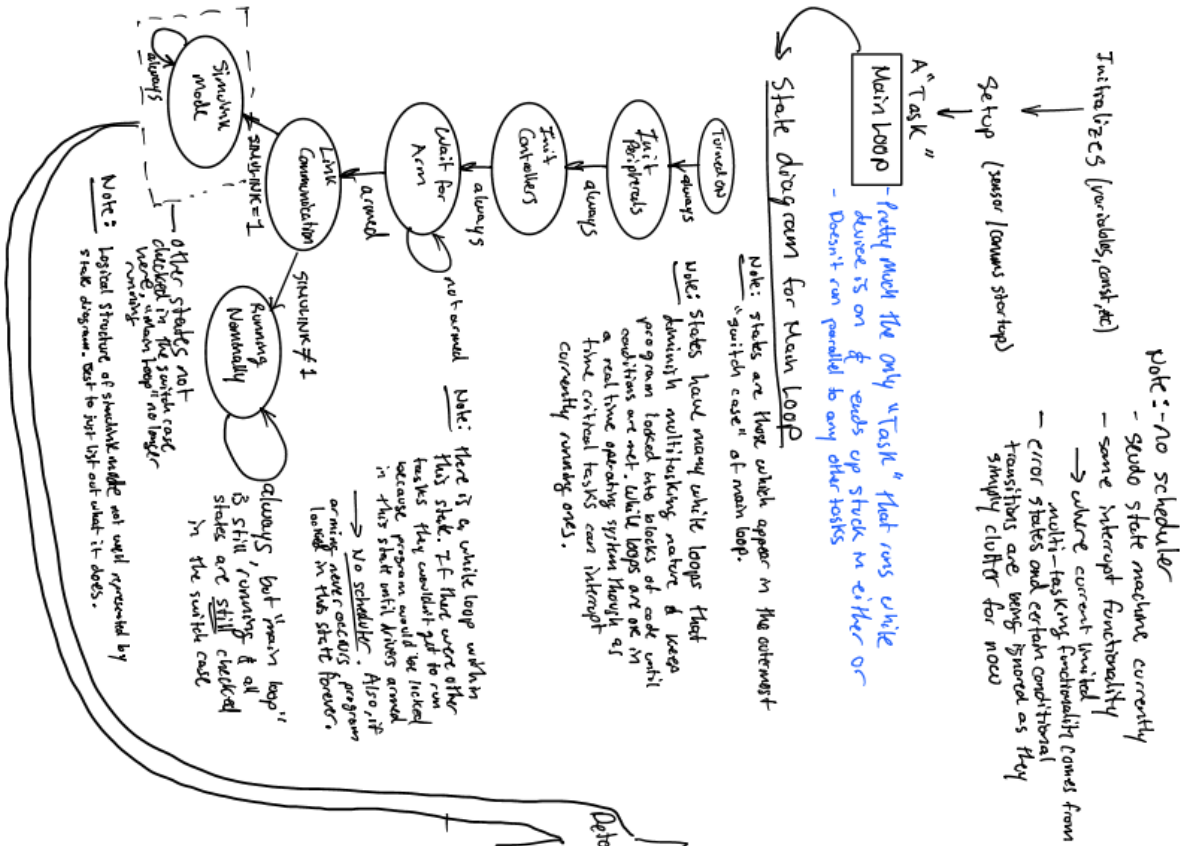 Note: - no scheduler
- seudo state machine currently
- some interrupt functionality
→ where current limited
multi-tasking functionality comes from
- error states and certain conditional
transitions are being ignored as they
simply clutter for now
Initializes (variables, const, etc)
Setup (sensor/comms startup)
A "Task"
Main Loop
- Pretty much the only "Task" that runs while
device is on & ends up stuck in either or
- Doesn't run parallel to any other tasks
State diagram for Main Loop
Note: states are those which appear in the outermost
"switch case" of main loop.
Turned ON
always
Init
Peripherals
always
Init
Controllers
always
Wait for
Arm
not armed
armed
Link
Communication
SIMULINK=1
SIMULINK≠1
Simulink
Mode
always
Running
Nominally
always, but "main loop"
is still running & all
states are still checked
in the switch case
Note: States have many while loops that
diminish multitasking nature & keep
program locked into blocks of code until
conditions are met. While loops are OK in
a real time operating system though as
time critical tasks can interrupt
currently running ones.
Note: there is a while loop within
this state. If there were other
tasks they wouldn't get to run
because program would be locked
in this state until drivers armed
→ No scheduler. Also, if
arming never occurs, program
locked in this state forever.
other states not
checked in the switch case
here, "main loop" no longer
running
Note: Logical structure of simulink mode not well represented by
state diagram. Best to just list out what it does.